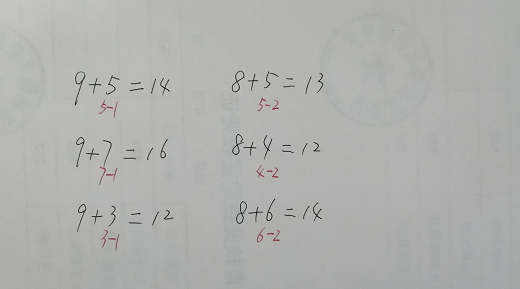 9+5=14 8+5=13
5-1 5-2
9+7=16 8+4=12
7-1 4-2
9+3=12 8+6=14
3-1 6-2